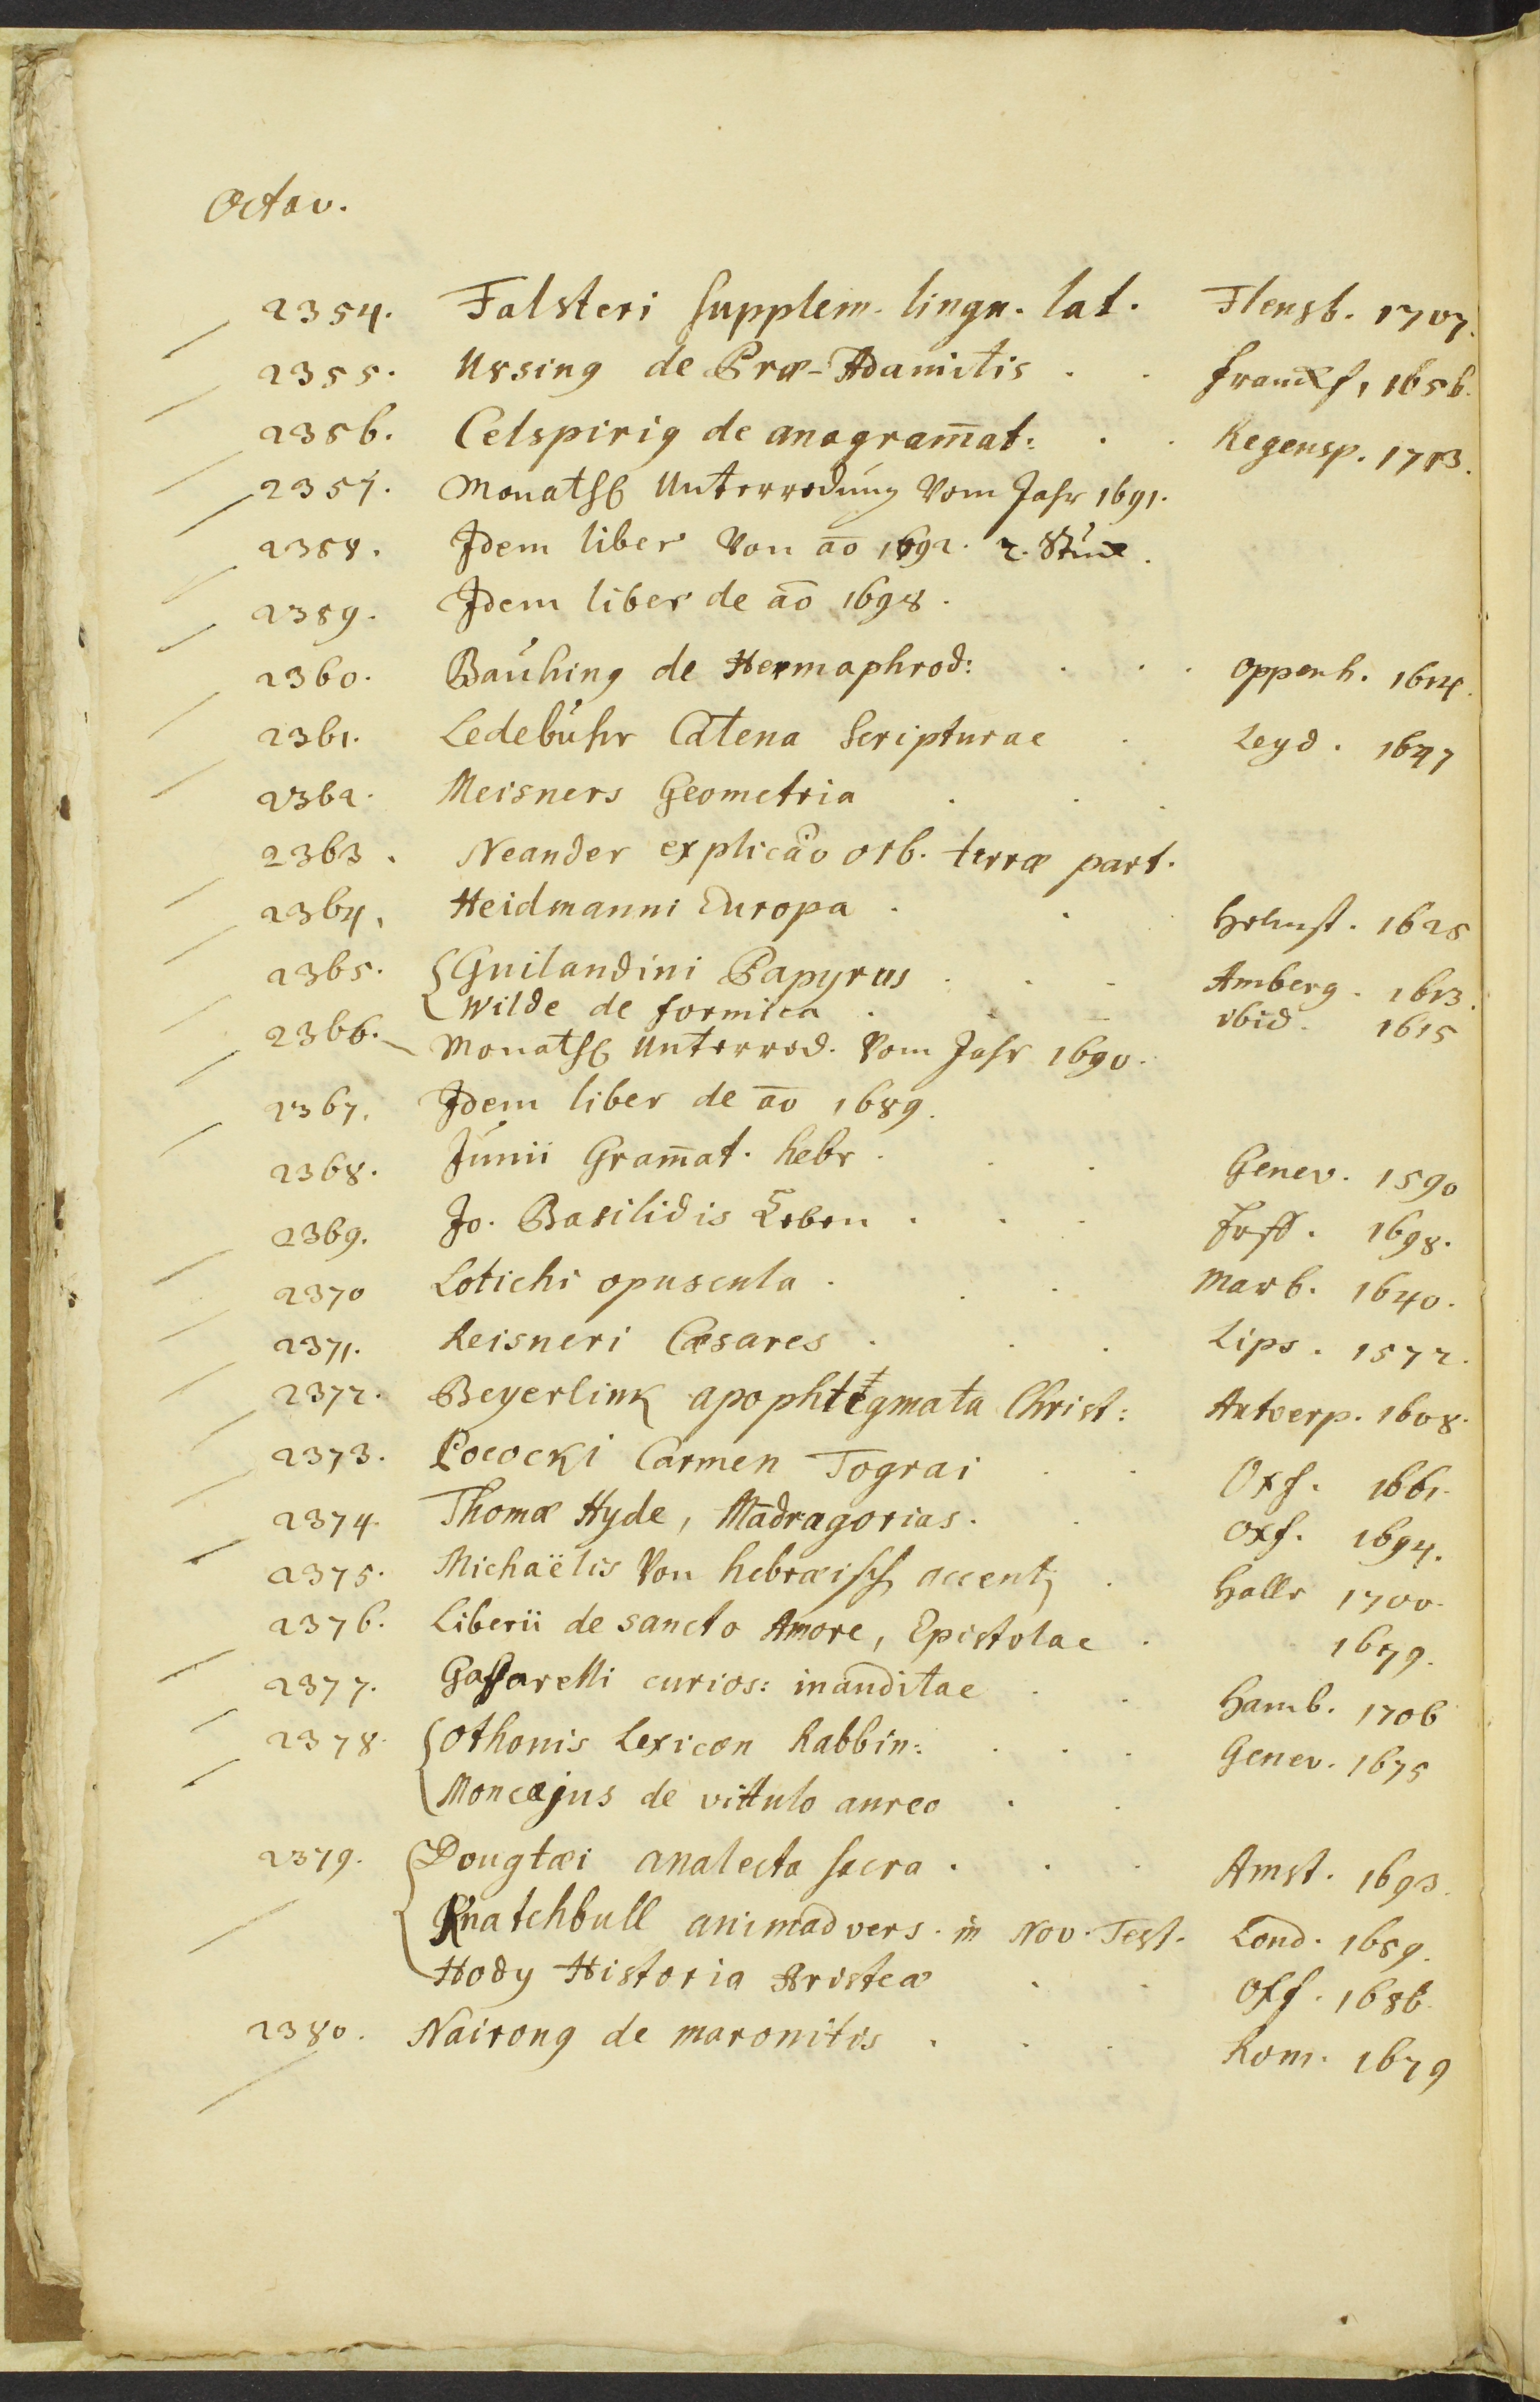 Octav.
2354. Falsteri supplem. lingu. lat. Flensb. 1707.
2355. Ursing de Præ-Adamitis . . Franckf, 1656.
2356. Celspirig de anagram̄at: . . Regensp. 1713.
2357. Monatsch Unterredung Vom Jahr 1691.
2358. Idem liber Von āo 1692. 2. Stück.
2359. Idem liber de āo 1698.
2360. Bauhing de Hermaphrod: . . . Oppenh. 1614.
2361. Ledebuhr Catena Scripturae . Leyd. 1647
2362. Meisners Geometria . . .
2363. Neander explicāo orb. terræ part.
2364. Heidmanni Europa . . . Helmst. 1625
2365. Guilandini Papyrus . . . Amberg. 1613.
Wilde de formica . . . ibid. 1615
2366. Monatsch Unterred. Vom Jahr 1690.
2367. Idem liber de āo 1689.
2368. Junii Gram̄at. hebr. . . Genev. 1590
2369. Jo. Basilidis Leben . . . Frff. 1698.
2370 Lotichi opuscula . . . Marb. 1640.
2371. Reisneri Cæsares . . . Lips. 1572.
2372. Beyerlink apophtegmata Christ: Antverp. 1608.
2373. Pococki Carmen Tograi . . Oxf. 1661.
2374. Thomæ Hyde, Mādragorias. . Oxf. 1694.
2375. Michaëlis Von hebræisch accent . Halle 1700.
2376. Liberii de sancto Amore, Epistolae . 1679.
2377. Gaffarelli curios: inauditae . . Hamb. 1706
2378. Othonis Lexicon Rabbin: . . . Genev. 1675
Moncejus de vitulo aureo . .
2379. Dougtæi analecta sacra . . . Amst. 1693.
Knatchbull animadvers. in Nov. Test. Lond. 1659.
Hody Historia Aristeæ . . Oxf. 1686.
2380. Nairong de maronitis . . . Rom. 1679